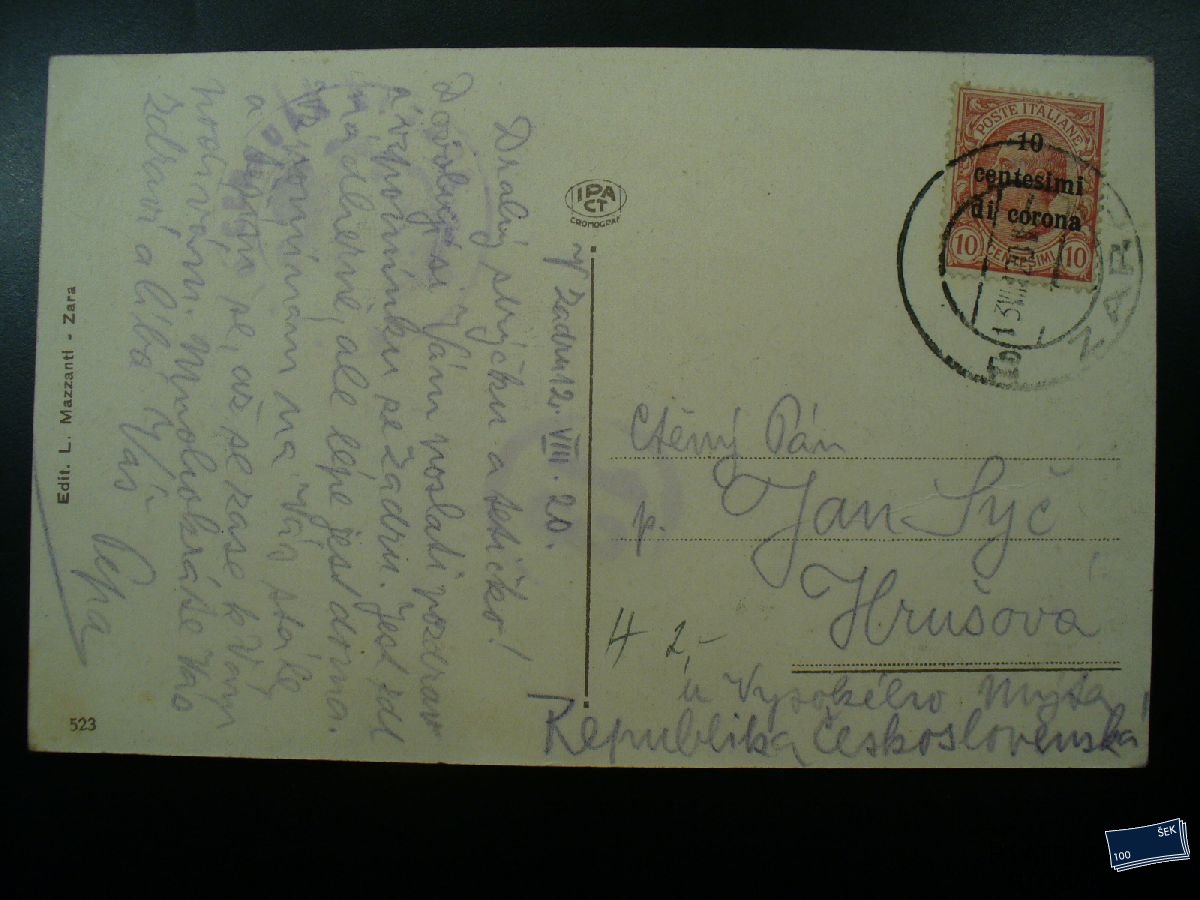 V Zadru 12. VIII. 20.
Drahý strýčku a tetičko!
Dovoluji si Vám poslati pozdrav
a vzpomínku ze Zadru. Jest zde
nádherně, ale lépe jest doma.
Vzpomínám na Vás stále
a těším se, až se zase k Vám
podívám. Mnohokráte Vás
zdraví a líbá Váš
Pepa
Edit. L. Mazzanti - Zara
523
IPA
CT
CROMOGRAF
POSTE ITALIANE
10
centesimi
di corona
10 CENTESIMI 10
ZARA
Ctěný Pán
p. Jan Syč
Hrušova
4 2,-
u Vysokého Mýta,
Republika Československá
100 ŠEK